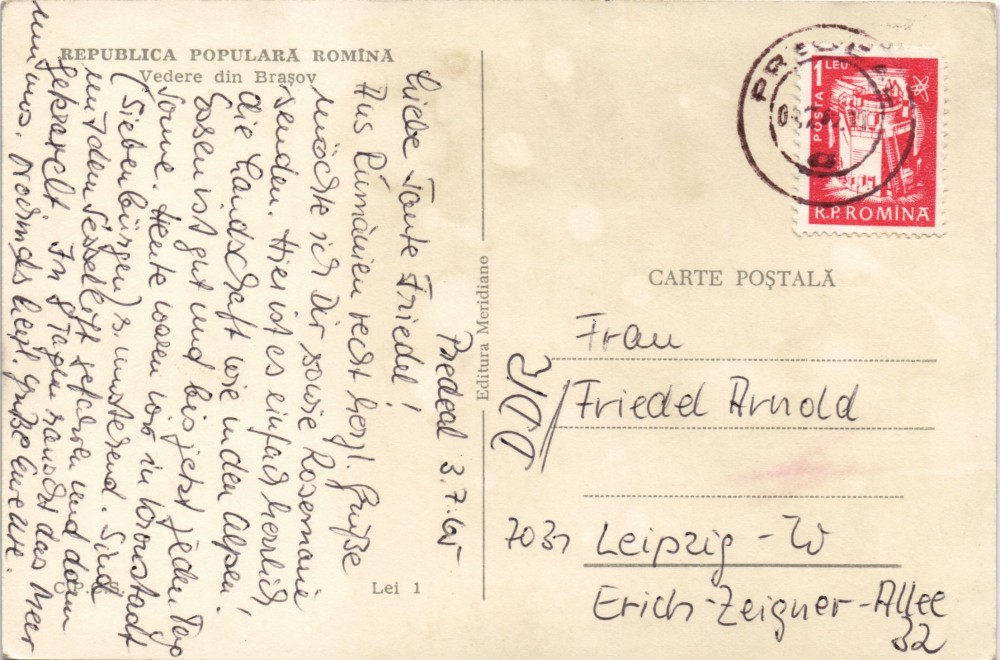 REPUBLICA POPULARĂ ROMÎNA
Vedere din Brașov
Predeal 3.7.65
Liebe Tante Friedel!
Aus Rumänien recht herzl. Grüße
möchte ich Dir sowie Rosemarie
senden. Hier ist es einfach herrlich
die Landschaft wie in den Alpen.
Essen ist gut und bis jetzt jeden Tag
Sonne. Heute waren wir in Kronstadt
(Siebenbürgen) s. Sind
mit dem Sessellift gefahren und dann
In 8 Tagen rauscht das Meer
um uns. Nochmals herzl. Grüße Eure
Lei 1
Editura Meridiane
POSTA 1 LEU
R.P. ROMÎNA
CARTE POȘTALĂ
Frau
Friedel Arnold
DDR
7031 Leipzig - W
Erich-Zeigner-Allee
32